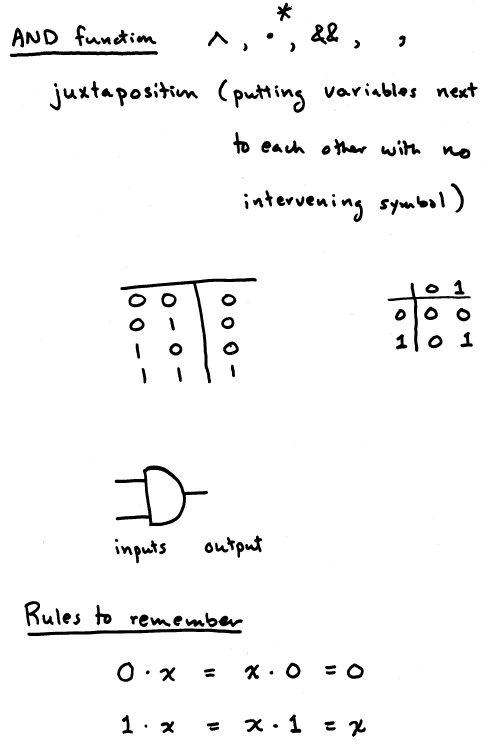 AND function ∧, ·, *, &&, ,
juxtaposition (putting variables next
to each other with no
intervening symbol)
0 0 | 0
0 1 | 0
1 0 | 0
1 1 | 1
| 0 1
0 | 0 0
1 | 0 1
inputs output
Rules to remember
0 · x = x · 0 = 0
1 · x = x · 1 = x